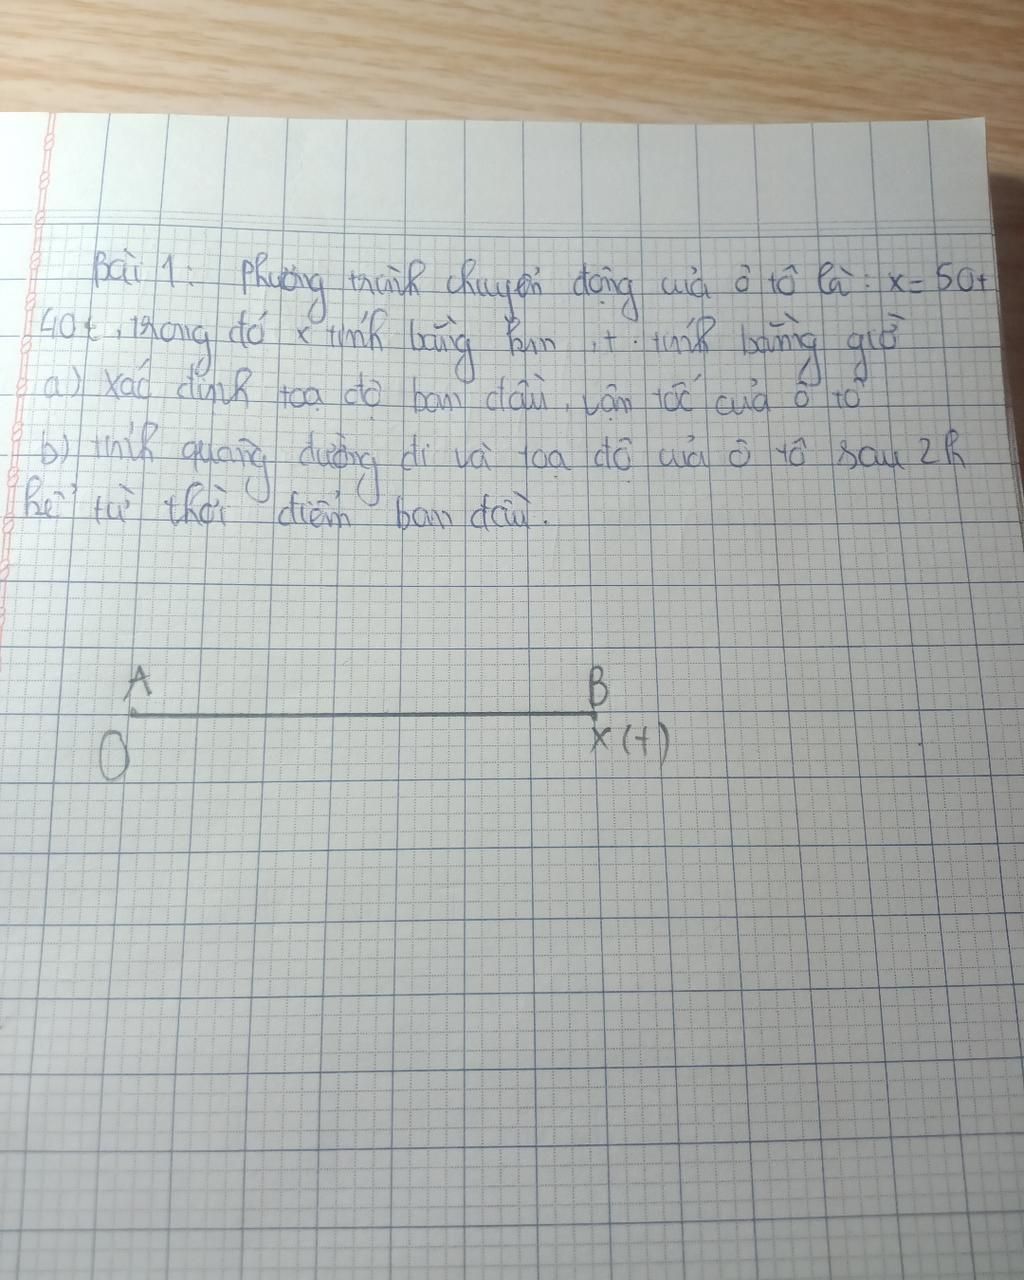 Bài 1: Phương trình chuyển động của ô tô là: x = 50+
40t, trong đó x tính bằng km, t tính bằng giờ
a) xác định toạ độ ban đầu, vận tốc của ô tô
b) tính quãng đường đi và toạ độ của ô tô sau 2h
kể từ thời điểm ban đầu.
A B
O x (+)